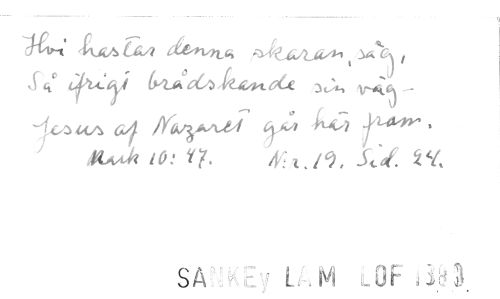 Hvi hastar denna skaran, säg,
Så ifrigt brådskande sin väg—
Jesus af Nazaret går här fram.
Mark 10:47. N:r. 19. Sid. 24.
SANKEY LAM LOF 1883